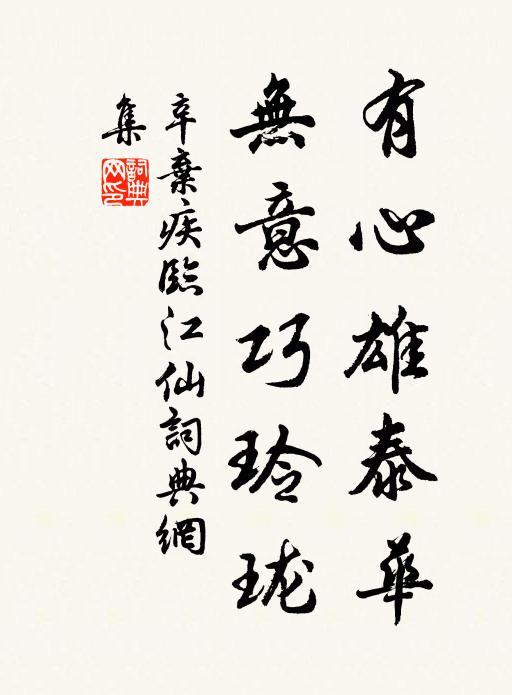 有心雄泰華
無意巧玲珑
辛棄疾臨江仙詞典網
集
詞典網印